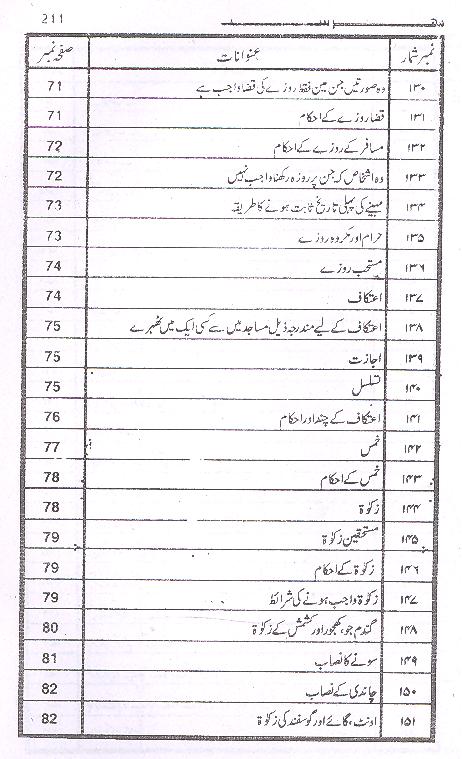 211
نمبر شمار عنوانات صفحہ نمبر
۱۳۰ وہ صورتیں جن میں فقط روزے کی قضا واجب ہے 71
۱۳۱ قضا روزے کے احکام 71
۱۳۲ مسافر کے روزے کے احکام 72
۱۳۳ وہ اشخاص کہ جن پر روزہ رکھنا واجب نہیں 72
۱۳۴ مہینے کی پہلی تاریخ ثابت ہونے کا طریقہ 73
۱۳۵ حرام اور مکروہ روزے 73
۱۳۶ مستحب روزے 74
۱۳۷ اعتکاف 74
۱۳۸ اعتکاف کے لیے مندرجہ ذیل مساجد میں سے کسی ایک میں ٹھہرے 75
۱۳۹ اجازت 75
۱۴۰ تسلسل 75
۱۴۱ اعتکاف کے چند اور احکام 76
۱۴۲ خمس 77
۱۴۳ خمس کے احکام 78
۱۴۴ زکوٰۃ 78
۱۴۵ مستحقین زکوٰۃ 79
۱۴۶ زکوٰۃ کے احکام 79
۱۴۷ زکوٰۃ واجب ہونے کی شرائط 79
۱۴۸ گندم جو، کھجور اور کشمش کے زکوٰۃ 80
۱۴۹ سونے کا نصاب 81
۱۵۰ چاندی کے نصاب 82
۱۵۱ اونٹ، گائے اور گوسفند کی زکوٰۃ 82